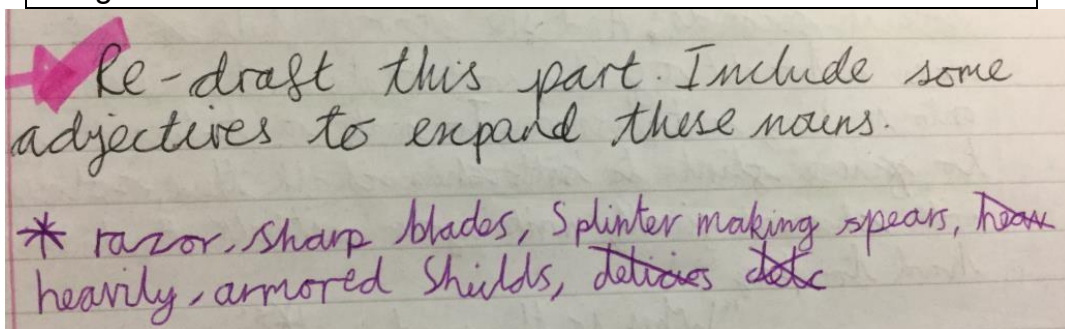 Re-draft this part. Include some
adjectives to expand these nouns.
* razor, sharp blades, Splinter making spears, heav
heavily, armored Shields, delicies